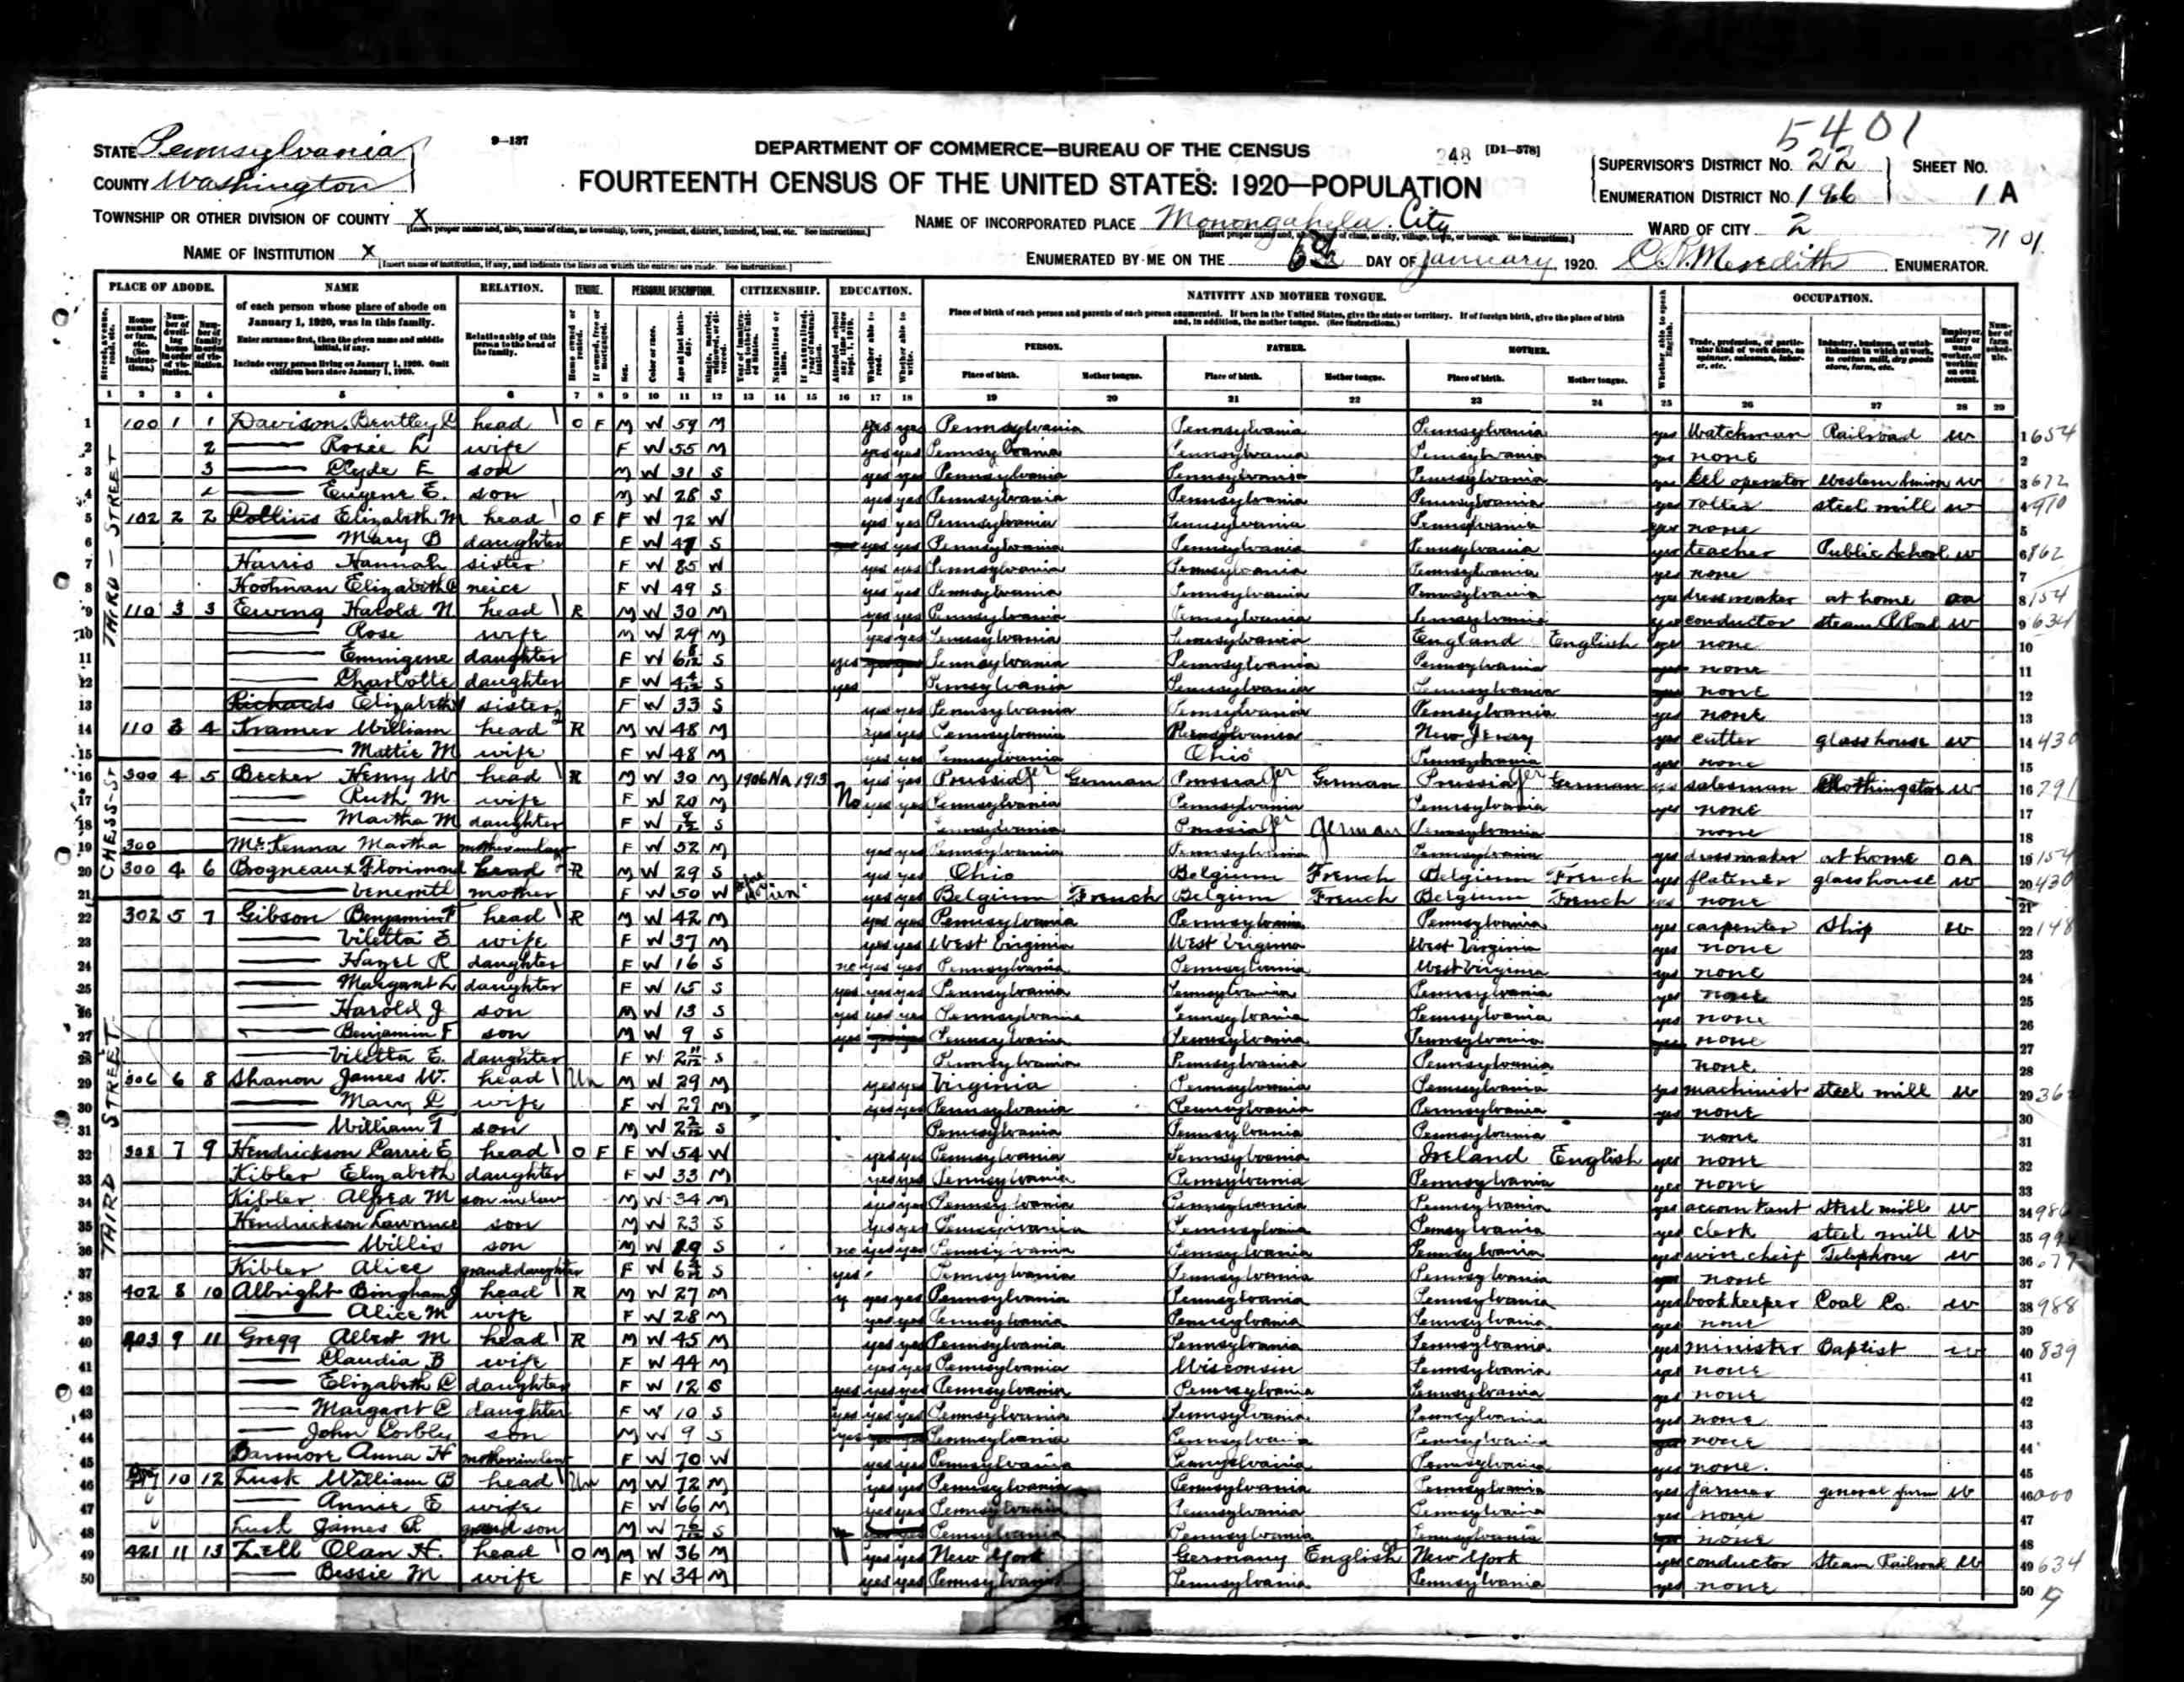 5401
STATE Pennsylvania
COUNTY Washington
9—137
DEPARTMENT OF COMMERCE—BUREAU OF THE CENSUS
248 [D1—578]
FOURTEENTH CENSUS OF THE UNITED STATES: 1920—POPULATION
SUPERVISOR'S DISTRICT No. 22
ENUMERATION DISTRICT No. 196
SHEET No. 1 A
TOWNSHIP OR OTHER DIVISION OF COUNTY X
NAME OF INCORPORATED PLACE Monongahela City
WARD OF CITY 2
7101
NAME OF INSTITUTION X
ENUMERATED BY ME ON THE 6th DAY OF January, 1920. C. R. Meredith ENUMERATOR.
PLACE OF ABODE. NAME RELATION. TENURE. PERSONAL DESCRIPTION. CITIZENSHIP. EDUCATION. NATIVITY AND MOTHER TONGUE. OCCUPATION.
of each person whose place of abode on January 1, 1920, was in this family.
Enter surname first, then the given name and middle initial, if any.
Include every person living on January 1, 1920. Omit children born since January 1, 1920.
Relationship of this person to the head of the family.
Place of birth of each person and parents of each person enumerated. If born in the United States, give the state or territory. If of foreign birth, give the place of birth and, in addition, the mother tongue. (See Instructions.)
PERSON. FATHER. MOTHER.
Place of birth. Mother tongue. Place of birth. Mother tongue. Place of birth. Mother tongue.
1 2 3 4 5 6 7 8 9 10 11 12 13 14 15 16 17 18 19 20 21 22 23 24 25 26 27 28 29
THIRD - STREET
CHESS-ST
THIRD STREET
1 100 1 1 Davison, Bentley head O F M W 59 M yes yes Pennsylvania Pennsylvania Pennsylvania yes Watchman Railroad W 1 654
2 2 Rosie L wife F W 55 M yes yes Pennsylvania Pennsylvania Pennsylvania yes none 2
3 3 Clyde E son M W 31 S yes yes Pennsylvania Pennsylvania Pennsylvania yes tel operator Western Union W 3 672
4 Eugene E. son M W 28 S yes yes Pennsylvania Pennsylvania Pennsylvania yes roller steel mill W 4
5 102 2 2 Collins Elizabeth M head O F F W 72 W yes yes Pennsylvania Pennsylvania Pennsylvania yes none 5
6 Mary B daughter F W 47 S yes yes Pennsylvania Pennsylvania Pennsylvania yes teacher Public School W 6 862
7 Harris Hannah sister F W 85 W yes yes Pennsylvania Pennsylvania Pennsylvania yes none 7
8 Hootman Elizabeth neice F W 49 S yes yes Pennsylvania Pennsylvania Pennsylvania yes dressmaker at home oa 8 154
9 110 3 3 Ewing Harold N head R M W 30 M yes yes Pennsylvania Pennsylvania Pennsylvania yes conductor steam W 9 634
10 Rose wife M W 29 M yes yes Pennsylvania Pennsylvania England English yes none 10
11 Emmigene daughter F W S yes Pennsylvania Pennsylvania Pennsylvania none 11
12 Charlotte daughter F W S yes Pennsylvania Pennsylvania Pennsylvania none 12
13 Richards Elizabeth sister F W 33 S yes yes Pennsylvania Pennsylvania Pennsylvania yes none 13
14 110 3 4 Kramer William head R M W 48 M yes yes Pennsylvania Pennsylvania New Jersey yes cutter glass house W 14 430
15 Mattie M wife F W 48 M yes yes Pennsylvania Ohio Pennsylvania yes none 15
16 300 4 5 Becker Henry W head R M W 30 M 1906 Na 1913 yes yes Prussia Ger German Prussia Ger German Prussia Ger German yes salesman Clothing store W 16 291
17 Ruth M wife F W 20 M No yes yes Pennsylvania Pennsylvania Pennsylvania yes none 17
18 Martha M daughter F W S Pennsylvania Prussia Ger German Pennsylvania none 18
19 300 McKenna Martha mother in law F W 52 M yes yes Pennsylvania Pennsylvania Pennsylvania yes dressmaker at home OA 19 154
20 300 4 6 Brogneaux Florimond head R M W 29 S yes yes Ohio Belgium French Belgium French yes flatener glass house W 20 430
21 mother F W 50 W yes yes Belgium French Belgium French Belgium French yes none 21
22 302 5 7 Gibson Benjamin F head R M W 42 M yes yes Pennsylvania Pennsylvania Pennsylvania yes carpenter Ship W 22 148
23 Viletta E wife F W 37 M yes yes West Virginia West Virginia West Virginia yes none 23
24 Hazel R daughter F W 16 S no yes yes Pennsylvania Pennsylvania West Virginia yes none 24
25 Margaret L daughter F W 15 S yes yes yes Pennsylvania Pennsylvania Pennsylvania yes none 25
26 Harold J son M W 13 S yes yes yes Pennsylvania Pennsylvania Pennsylvania yes none 26
27 Benjamin F son M W 9 S yes Pennsylvania Pennsylvania Pennsylvania none 27
28 Viletta E. daughter F W 2 11/12 S Pennsylvania Pennsylvania Pennsylvania none 28
29 306 6 8 Shanon James W. head Un M W 29 M yes yes Virginia Pennsylvania Pennsylvania yes machinist steel mill W 29
30 Mary C wife F W 29 M yes yes Pennsylvania Pennsylvania Pennsylvania yes none 30
31 William T son M W S Pennsylvania Pennsylvania Pennsylvania none 31
32 308 7 9 Hendrickson Carrie E head O F F W 54 W yes yes Pennsylvania Pennsylvania Ireland English yes none 32
33 Kibler Elizabeth daughter F W 33 M yes yes Pennsylvania Pennsylvania Pennsylvania yes none 33
34 Kibler Alfred M son in law M W 34 M yes yes Pennsylvania Pennsylvania Pennsylvania yes accountant steel mill W 34
35 Hendrickson Lawrence son M W 23 S yes yes Pennsylvania Pennsylvania Pennsylvania yes clerk steel mill W 35
36 Willis son M W S no yes yes Pennsylvania Pennsylvania Pennsylvania yes wire chief Telephone W 36 677
37 Kibler Alice granddaughter F W S yes Pennsylvania Pennsylvania Pennsylvania none 37
38 402 8 10 Albright Bingham J head R M W 27 M y yes yes Pennsylvania Pennsylvania Pennsylvania yes bookkeeper Coal Co. W 38 988
39 Alice M wife F W 28 M yes yes Pennsylvania Pennsylvania Pennsylvania yes none 39
40 403 9 11 Gregg Albert M head R M W 45 M yes yes Pennsylvania Pennsylvania Pennsylvania yes minister Baptist W 40 839
41 Claudia B wife F W 44 M yes yes Pennsylvania Wisconsin Pennsylvania yes none 41
42 Elizabeth C daughter F W 12 S yes yes yes Pennsylvania Pennsylvania Pennsylvania yes none 42
43 Margaret C daughter F W 10 S yes yes yes Pennsylvania Pennsylvania Pennsylvania yes none 43
44 John Corbley son M W 9 S yes Pennsylvania Pennsylvania Pennsylvania none 44
45 Barmore Anna H mother in law F W 70 W yes yes Pennsylvania Pennsylvania Pennsylvania yes none. 45
46 10 12 Lusk William B head Un M W 72 M yes yes Pennsylvania Pennsylvania Pennsylvania yes farmer general farm W 46 000
47 Annie E wife F W 66 M yes yes Pennsylvania Pennsylvania Pennsylvania yes none 47
48 Lusk James R grand son M W S Pennsylvania Pennsylvania Pennsylvania none 48
49 421 11 13 Zell Olan H. head O M M W 36 M yes yes New York Germany English New York yes conductor Steam Railroad W 49 634
50 Bessie M wife F W 34 M yes yes Pennsylvania Pennsylvania Pennsylvania yes none 50